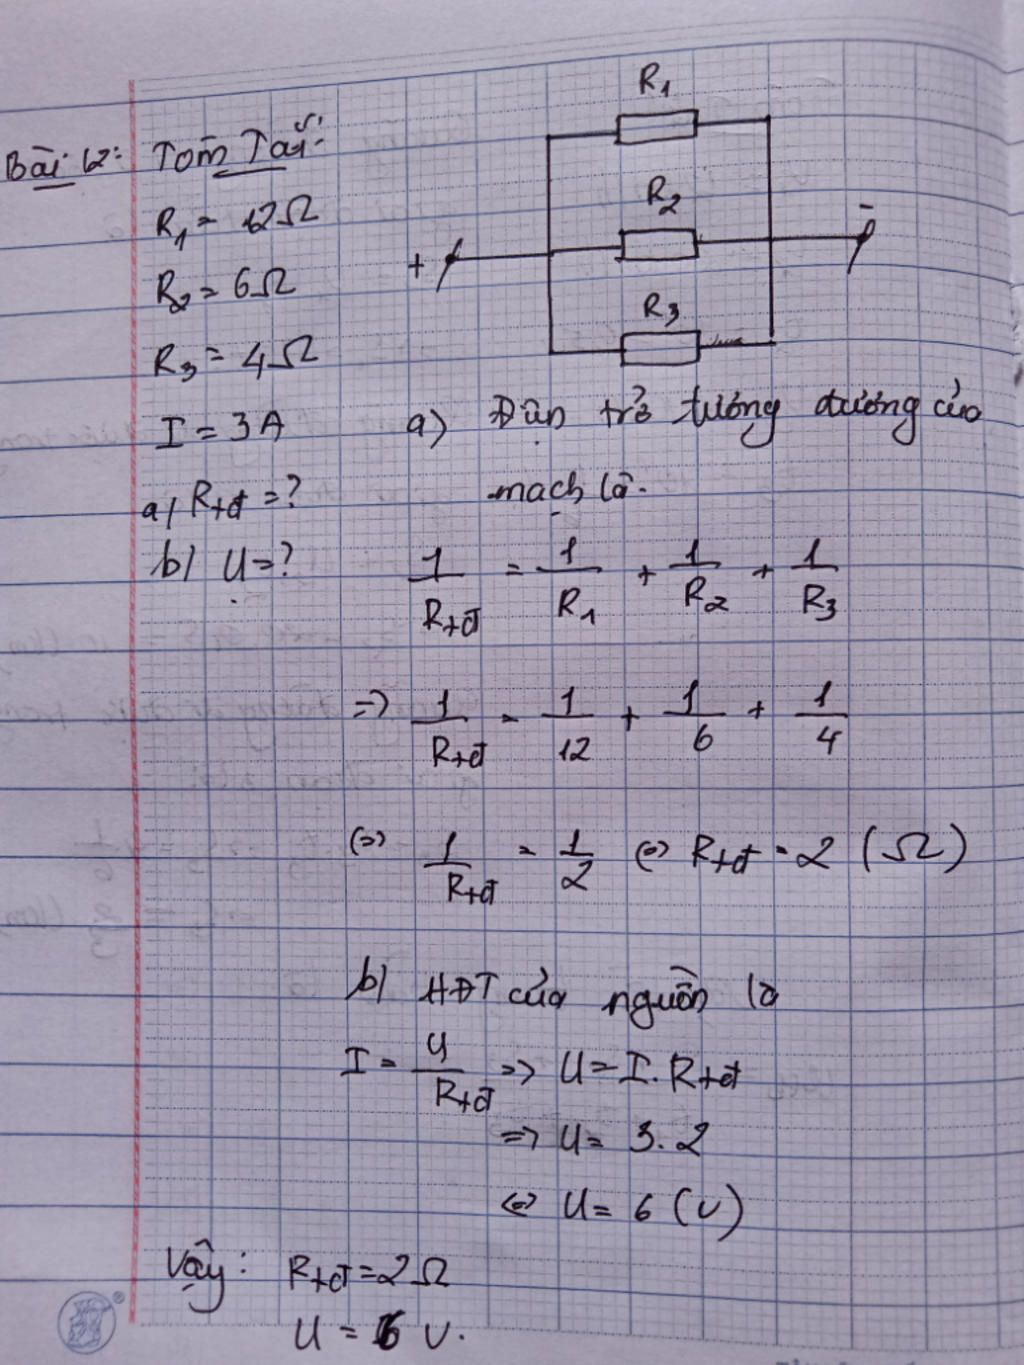 Bài 12: Tóm Tắt:
R1 = 12Ω
R2 = 6Ω
R3 = 4Ω
I = 3A
a/ Rtđ = ?
b/ U = ?
R1
R2
+ -
R3
a) Điện trở tương đương của
mạch là.
1/Rtđ = 1/R1 + 1/R2 + 1/R3
=> 1/Rtđ = 1/12 + 1/6 + 1/4
(=) 1/Rtđ = 1/2 (=) Rtđ = 2 (Ω)
b/ HĐT của nguồn là
I = U/Rtđ => U = I. Rtđ
=> U = 3. 2
(=) U = 6 (V)
Vậy: Rtđ = 2Ω
U = 6 V.